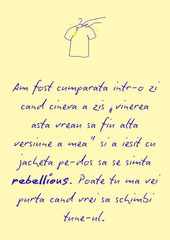 Am fost cumparata intr-o zi
cand cineva a zis „vinerea
asta vreau sa fiu alta
versiune a mea" si a iesit cu
jacheta pe-dos sa se simta
rebellious. Poate tu ma vei
purta cand vrei sa schimbi
tune-ul.